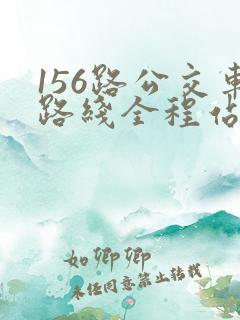 156路公交车
路线全程佔
如卿卿
未任同意禁止转载